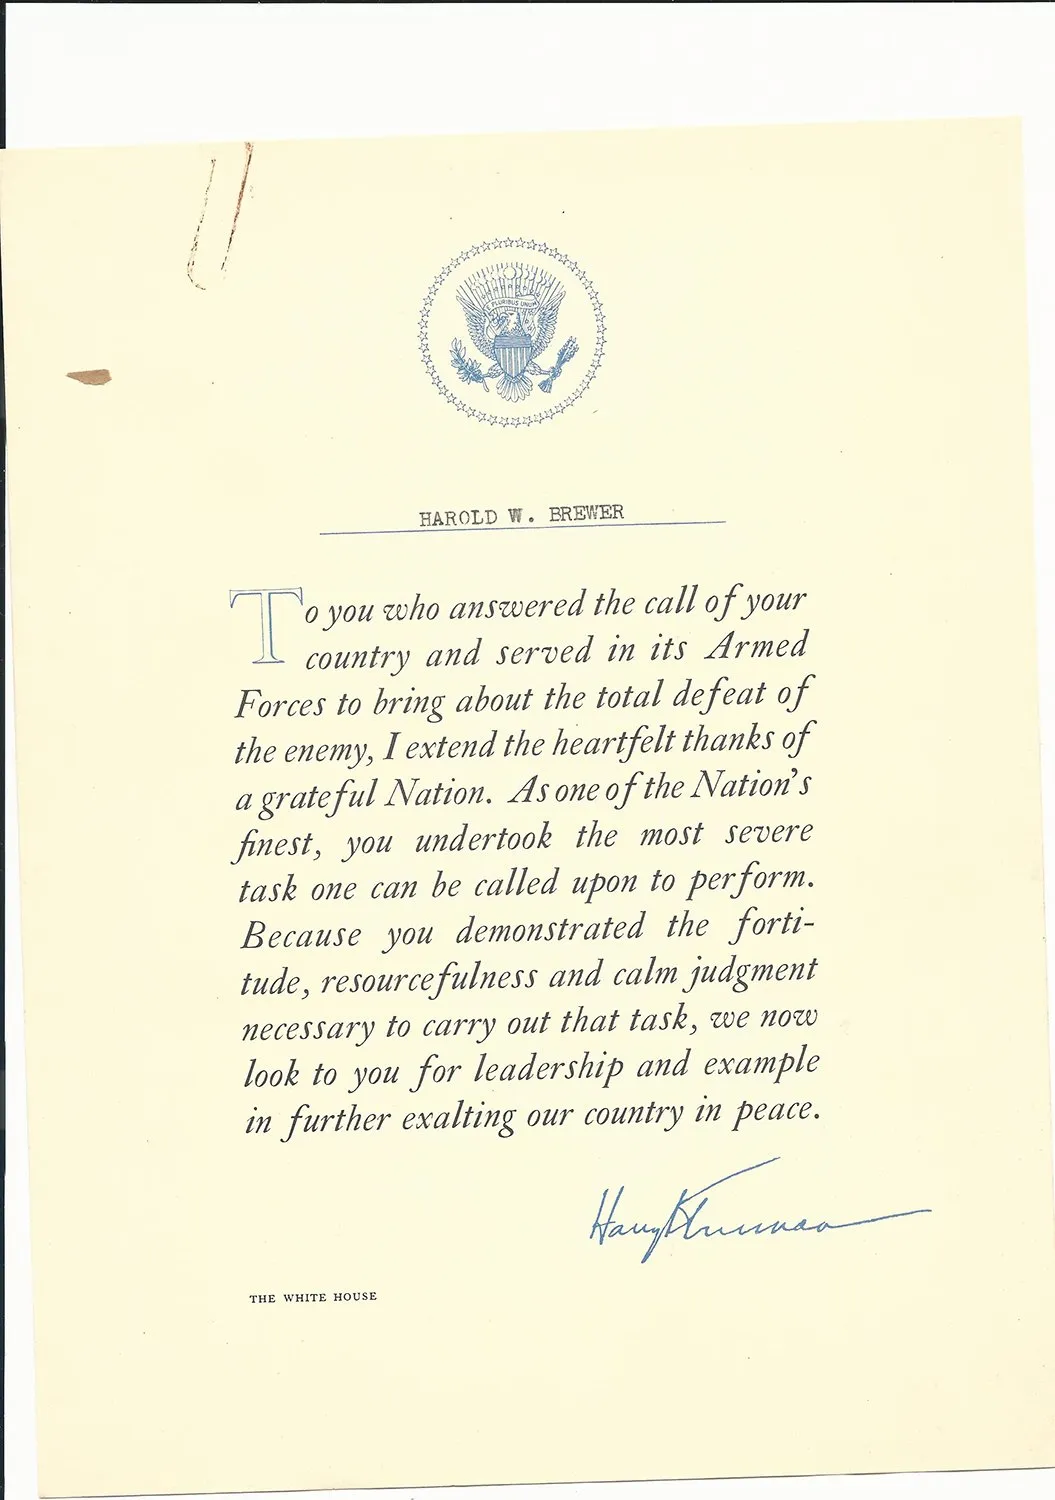 E PLURIBUS UNUM
HAROLD W. BREWER
To you who answered the call of your
country and served in its Armed
Forces to bring about the total defeat of
the enemy, I extend the heartfelt thanks of
a grateful Nation. As one of the Nation's
finest, you undertook the most severe
task one can be called upon to perform.
Because you demonstrated the forti-
tude, resourcefulness and calm judgment
necessary to carry out that task, we now
look to you for leadership and example
in further exalting our country in peace.
Harry Truman
THE WHITE HOUSE